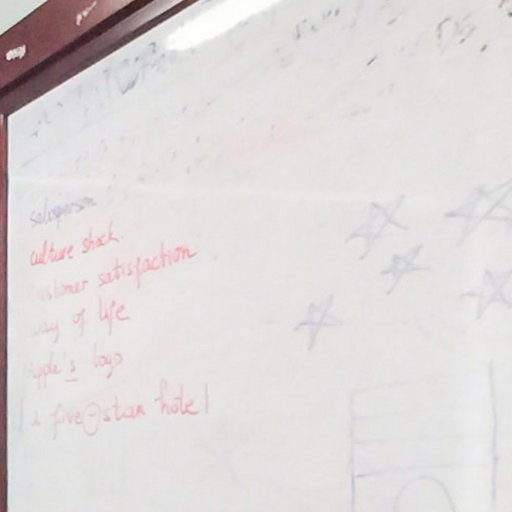 salesperson
culture shock.
customer satisfaction
way of life
Apple's logo
a five-star hotel